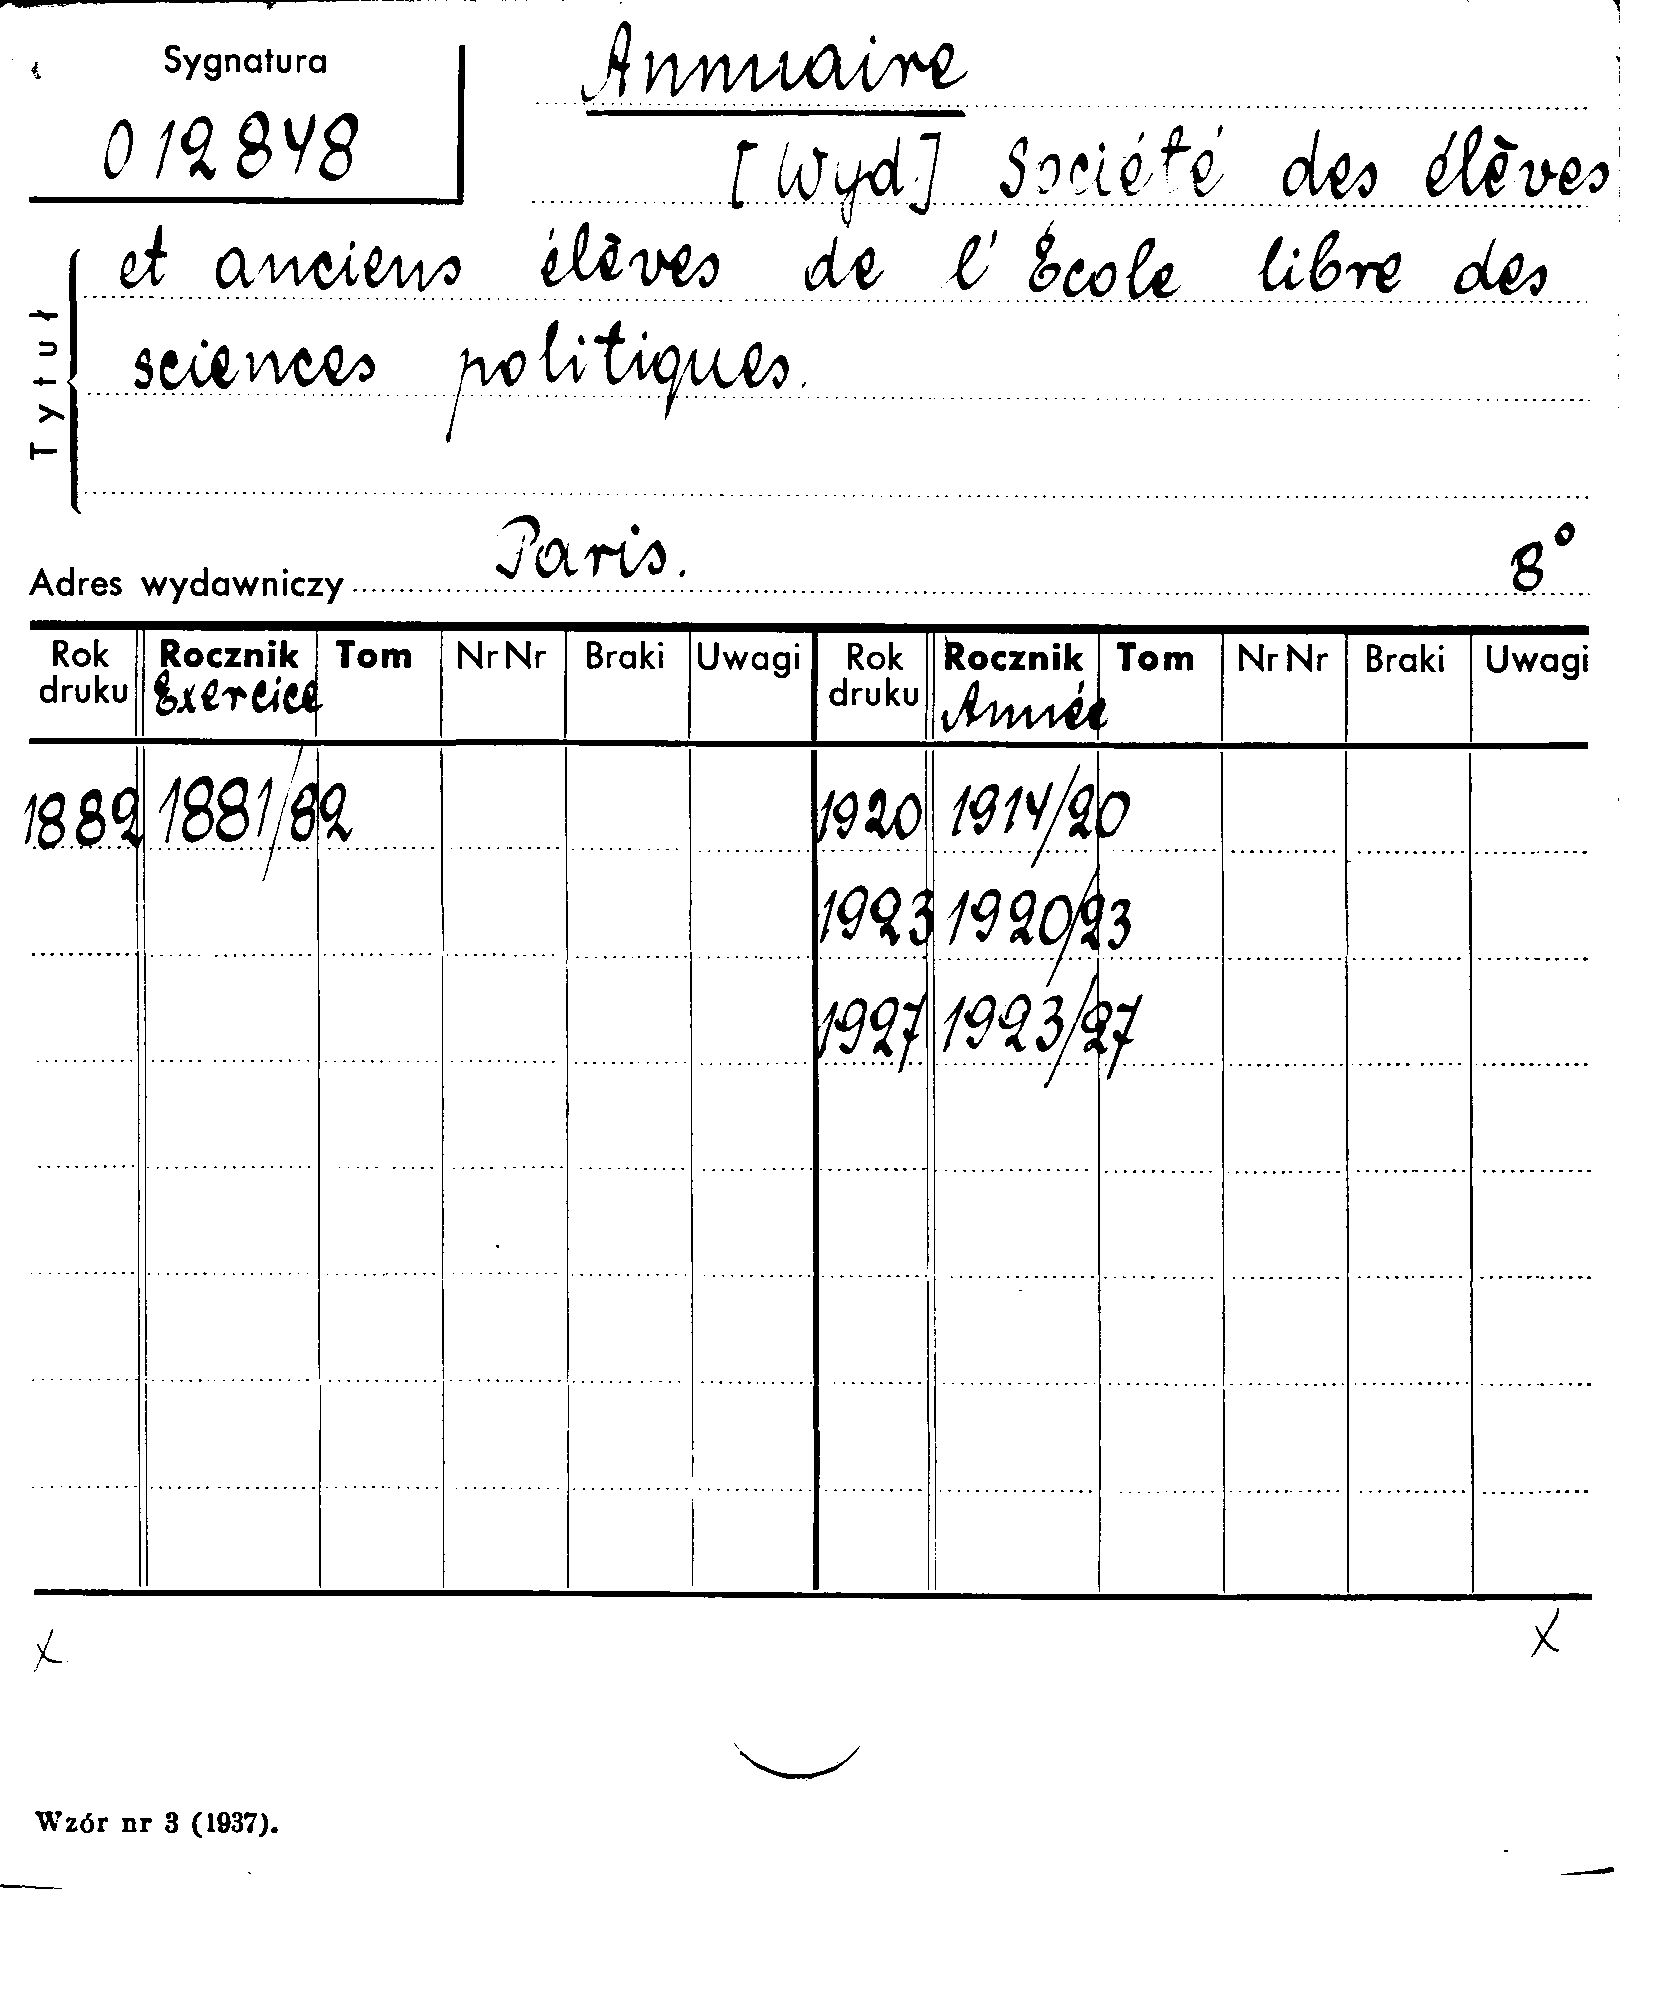 Sygnatura
012848
Annuaire
[Wyd.] Société des élèves
et anciens élèves de l'École libre des
sciences politiques.
Tytuł
Adres wydawniczy Paris. 8°
Rok druku Rocznik Exercice Tom Nr Nr Braki Uwagi Rok druku Rocznik Année Tom Nr Nr Braki Uwagi
1882 1881/82 1920 1914/20
1923 1920/23
1927 1923/27
x x
Wzór nr 3 (1937).